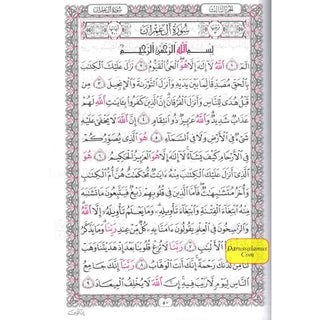 سُورَةُ آلِ عِمْرَانَ
بِسْمِ اللَّهِ الرَّحْمَٰنِ الرَّحِيمِ
الٓمٓ ١ اللَّهُ لَا إِلَٰهَ إِلَّا هُوَ الْحَيُّ الْقَيُّومُ ٢ نَزَّلَ عَلَيْكَ الْكِتَٰبَ
بِالْحَقِّ مُصَدِّقًا لِمَا بَيْنَ يَدَيْهِ وَأَنْزَلَ التَّوْرَىٰةَ وَالْإِنْجِيلَ ٣ مِنْ
قَبْلُ هُدًى لِلنَّاسِ وَأَنْزَلَ الْفُرْقَانَ إِنَّ الَّذِينَ كَفَرُوا بِـَٔايَٰتِ اللَّهِ لَهُمْ
عَذَابٌ شَدِيدٌ وَاللَّهُ عَزِيزٌ ذُو انْتِقَامٍ ٤ إِنَّ اللَّهَ لَا يَخْفَىٰ عَلَيْهِ
شَيْءٌ فِي الْأَرْضِ وَلَا فِي السَّمَاءِ ٥ هُوَ الَّذِي يُصَوِّرُكُمْ
فِي الْأَرْحَامِ كَيْفَ يَشَاءُ لَا إِلَٰهَ إِلَّا هُوَ الْعَزِيزُ الْحَكِيمُ ٦ هُوَ
الَّذِي أَنْزَلَ عَلَيْكَ الْكِتَٰبَ مِنْهُ ءَايَٰتٌ مُحْكَمَٰتٌ هُنَّ أُمُّ الْكِتَٰبِ
وَأُخَرُ مُتَشَٰبِهَٰتٌ فَأَمَّا الَّذِينَ فِي قُلُوبِهِمْ زَيْغٌ فَيَتَّبِعُونَ مَا تَشَٰبَهَ
مِنْهُ ابْتِغَاءَ الْفِتْنَةِ وَابْتِغَاءَ تَأْوِيلِهِ وَمَا يَعْلَمُ تَأْوِيلَهُ إِلَّا اللَّهُ
وَالرَّٰسِخُونَ فِي الْعِلْمِ يَقُولُونَ ءَامَنَّا بِهِ كُلٌّ مِنْ عِنْدِ رَبِّنَا وَمَا يَذَّكَّرُ
إِلَّا أُولُو الْأَلْبَٰبِ ٧ رَبَّنَا لَا تُزِغْ قُلُوبَنَا بَعْدَ إِذْ هَدَيْتَنَا وَهَبْ
لَنَا مِنْ لَدُنْكَ رَحْمَةً إِنَّكَ أَنْتَ الْوَهَّابُ ٨ رَبَّنَا إِنَّكَ جَامِعُ
النَّاسِ لِيَوْمٍ لَا رَيْبَ فِيهِ إِنَّ اللَّهَ لَا يُخْلِفُ الْمِيعَادَ ٩
Darussalamus
Com
٥٠